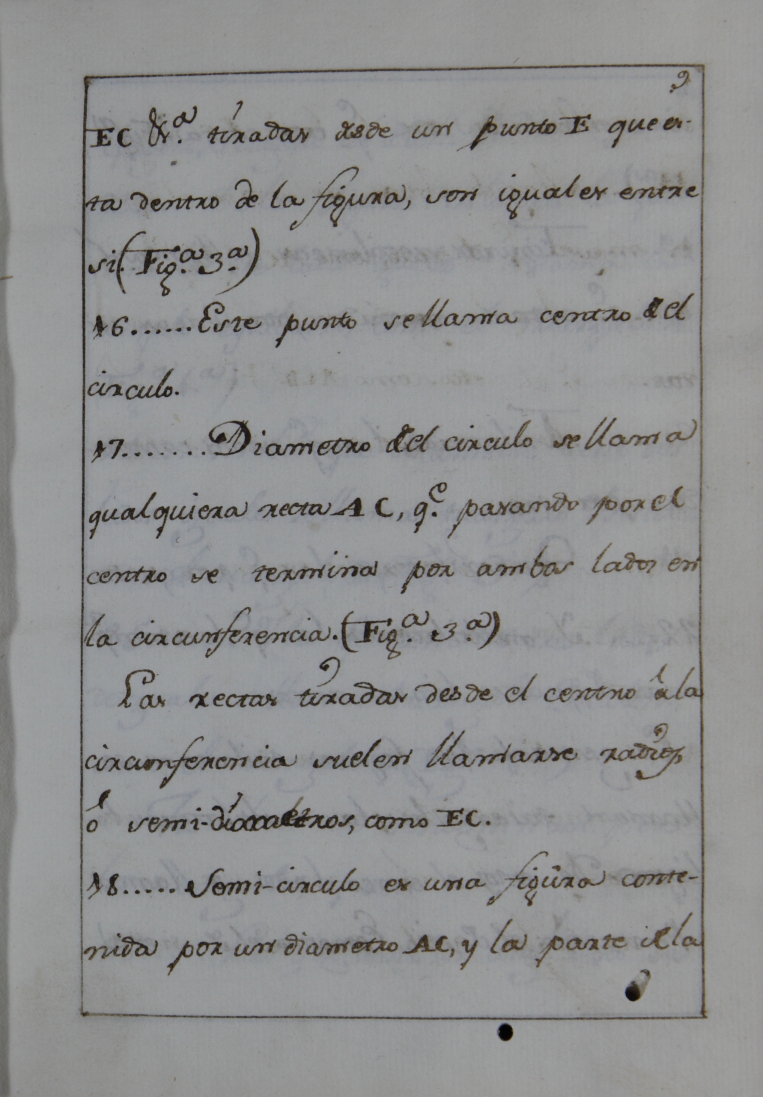 9
EC &r.ª tiradas desde un punto E que es-
ta dentro de la figura, son iguales entre
si. (Fig.ª 3.ª)
16......Este punto se llama centro del
circulo.
17.......Diametro del circulo se llama
qualquiera recta AC, q.e pasando por el
centro se termina por ambos lados en
la circunferencia. (Fig.ª 3.ª)
Las rectas tiradas desde el centro à la
circunferencia suelen llamarse radios,
ó semi-diametros, como EC.
18.....Semi-circulo es una figura conte-
nida por un diametro AC, y la parte de la